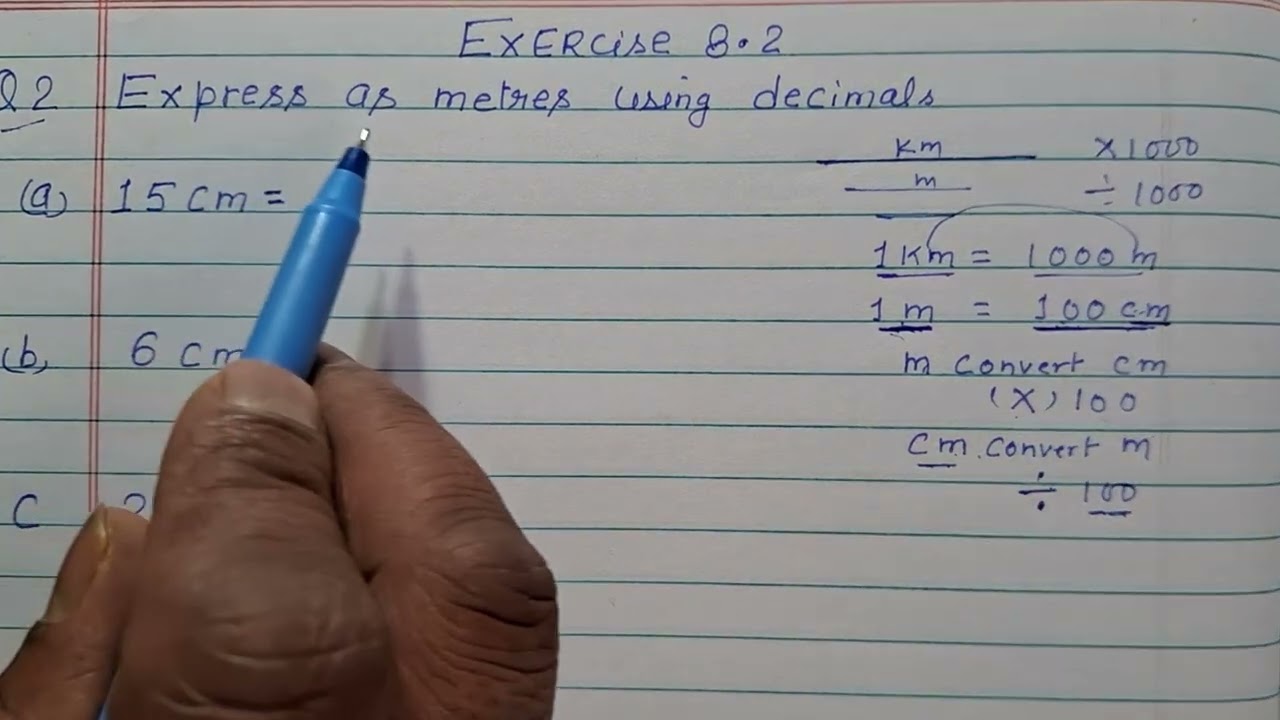 Exercise 8.2
Q2 Express as metres using decimals
(a) 15 cm =
(b) 6 cm
C 2
Km × 1000
m ÷ 1000
1 Km = 1000 m
1 m = 100 cm
m convert cm
(×) 100
cm convert m
÷ 100